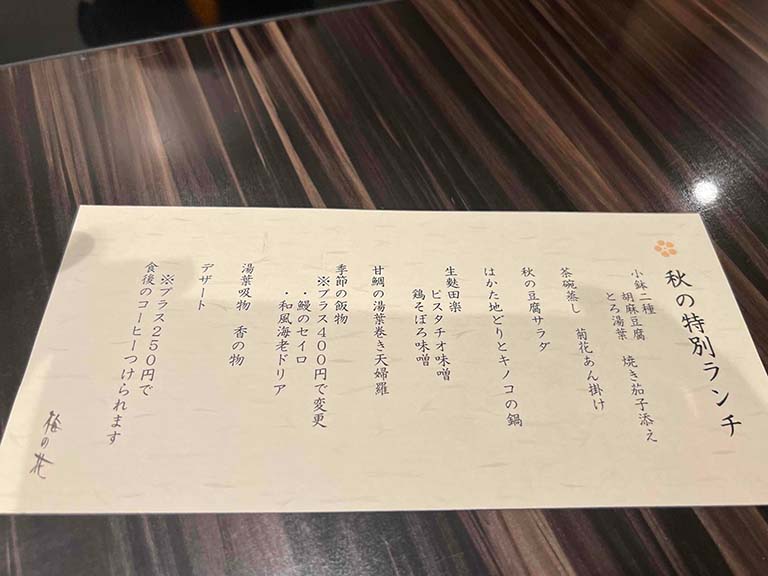 秋の特別ランチ
小鉢二種
胡麻豆腐　焼き茄子添え
とろ湯葉
茶碗蒸し　菊花あん掛け
秋の豆腐サラダ
はかた地どりとキノコの鍋
生麩田楽
ピスタチオ味噌
鶏そぼろ味噌
甘鯛の湯葉巻き天婦羅
季節の飯物
※プラス400円で変更
・鰻のセイロ
・和風海老ドリア
湯葉吸物　香の物
デザート
※プラス250円で
食後のコーヒーつけられます
梅の花